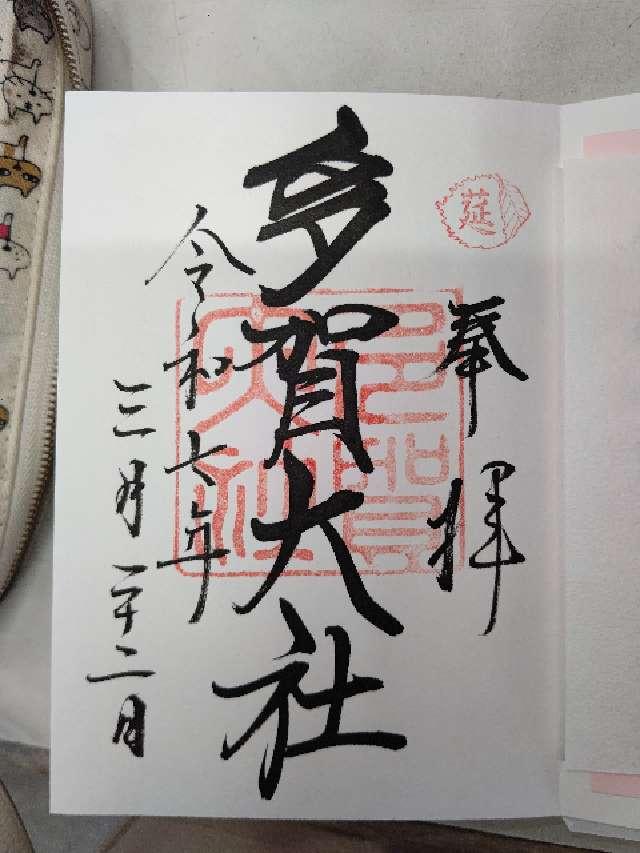 莚
奉拝
多賀大社
多賀大社
令和七年
三月二十二日